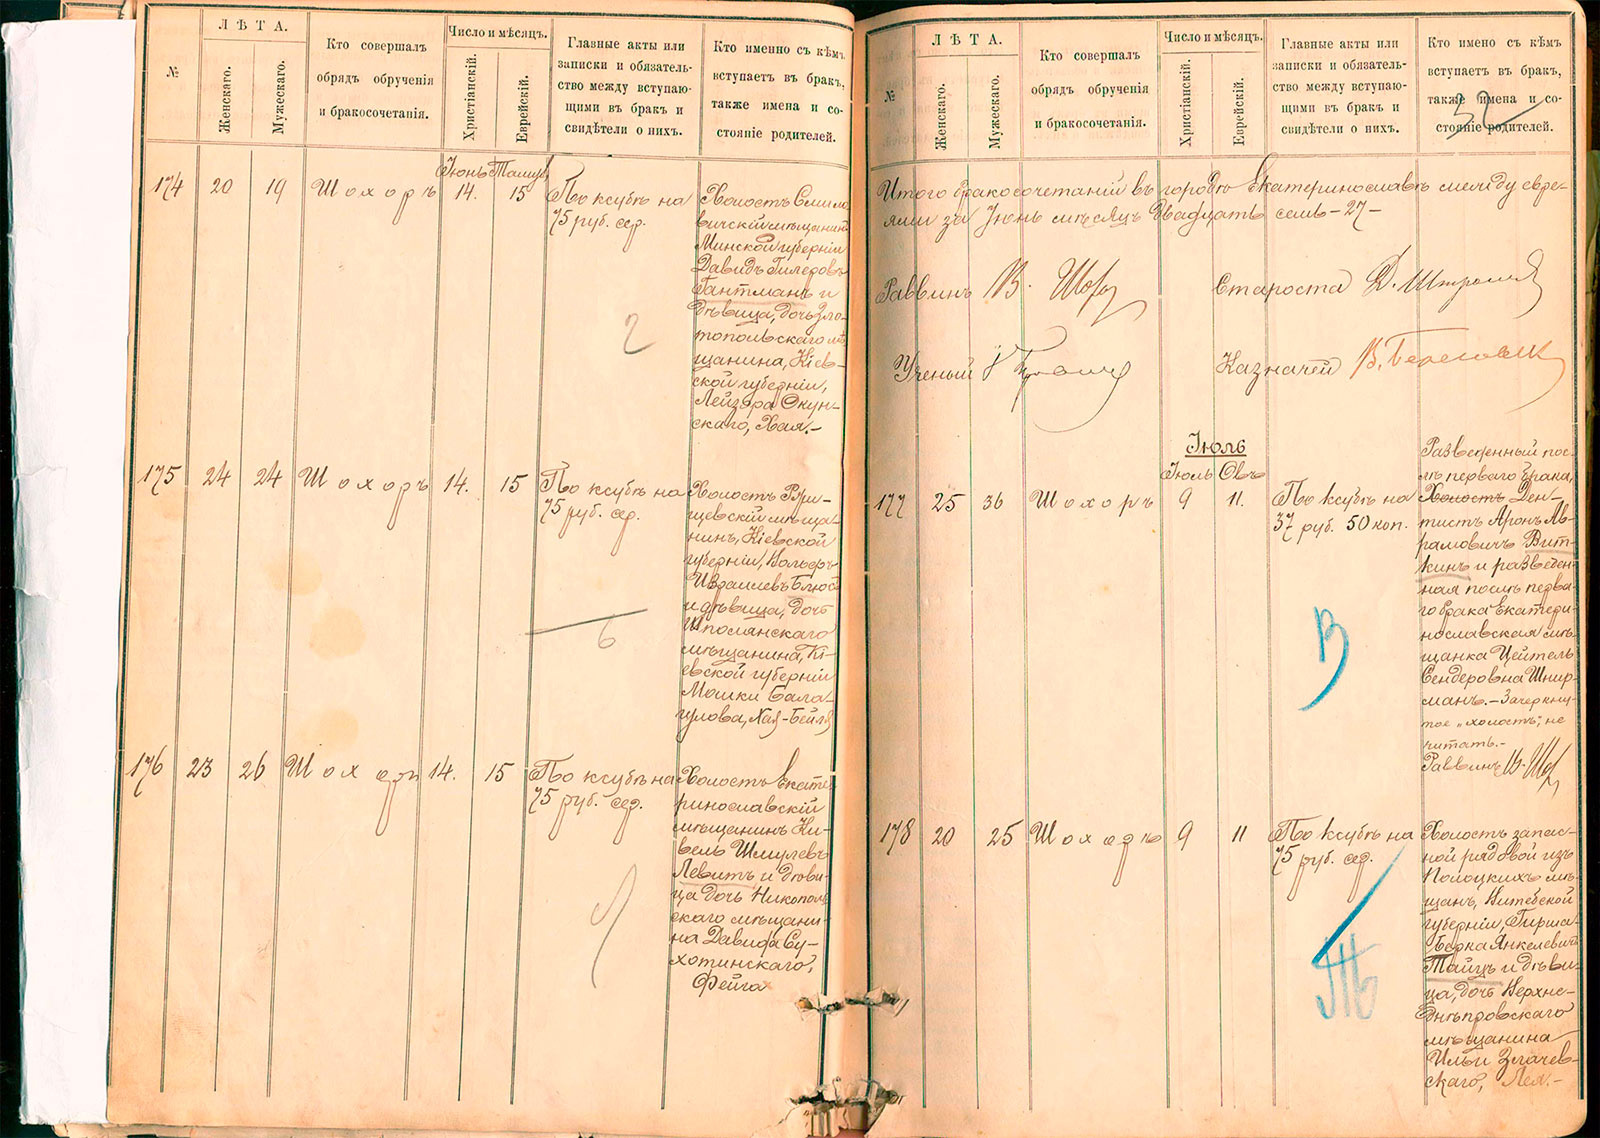 №
ЛѢТА.
Женскаго.
Мужескаго.
Кто совершалъ
обрядъ обрученія
и бракосочетанія.
Число и мѣсяцъ.
Христіанскій.
Еврейскій.
Главные акты или
записки и обязатель-
ство между вступаю-
щими въ бракъ и
свидѣтели о нихъ.
Кто именно съ кѣмъ
вступаетъ въ бракъ,
также имена и со-
стояніе родителей.
Іюнь Тамуз
174 20 19 Шохоръ 14. 15
По ксубѣ на
75 руб. сер.
2
Холостъ
мѣщанинъ
Минской губерніи
Давидъ Гилеровъ
Гантманъ и
дѣвица, дочь Зла-
топольскаго мѣ-
щанина, Кіев-
ской губерніи,
Лейзера Окун-
скаго, Хая.-
175 24 24 Шохоръ 14. 15
По ксубѣ на
75 руб. сер.
6
Холостъ Ржи-
щевскій мѣща-
нинъ, Кіевской
губерніи, Вольфъ
и дѣвица, дочь
Шполянскаго
мѣщанина, Кі-
евской губерніи
Мошки Бала-
гулова, Хая-Бейля
176 23 26 Шохоръ 14. 15
По ксубѣ на
75 руб. сер.
Холостъ Екате-
ринославскій
мѣщанинъ Ки-
вель Шмулевъ
Левитъ и дѣви-
ца дочь Никополь
скаго мѣщани-
на Давида Су-
хотинскаго,
Фейга
№
ЛѢТА.
Женскаго.
Мужескаго.
Кто совершалъ
обрядъ обрученія
и бракосочетанія.
Число и мѣсяцъ.
Христіанскій.
Еврейскій.
Главные акты или
записки и обязатель-
ство между вступаю-
щими въ бракъ и
свидѣтели о нихъ.
Кто имено съ кѣмъ
вступаетъ въ бракъ,
также имена и со-
стояніе родителей.
32
Итого бракосочетаній въ городѣ Екатеринославѣ между евре-
ями за Іюнь мѣсяцъ двадцать семь -27-
Раввинъ В. Шохор
Староста Д.
Ученый
Казначей В.
Іюль
Іюль Овъ
177 25 36 Шохоръ 9 11.
По ксубѣ на
37 руб. 50 коп.
В
Разведенный пос-
лѣ перваго брака,
Холостъ Ден-
тистъ Аронъ Ав-
рамовичъ Вит-
кинъ и разведен-
ная послѣ перва-
го брака Екатери-
нославская мѣ-
щанка Цейтель
Сендеровна Шпир-
манъ.- Зачеркну-
тое „холостъ", не
читать.-
Раввинъ В. Шох
178 20 25 Шохоръ 9 11
По ксубѣ на
75 руб. сер.
Холостъ запас-
ной рядовой изъ
Полоцкихъ мѣ-
щанъ, Витебской
губерніи, Гирша-
Берка Янкелевичъ
Тайцъ и дѣви-
ца, дочь Верхне-
днѣпровскаго
мѣщанина
Ильи Злачев-
скаго, Лея.-